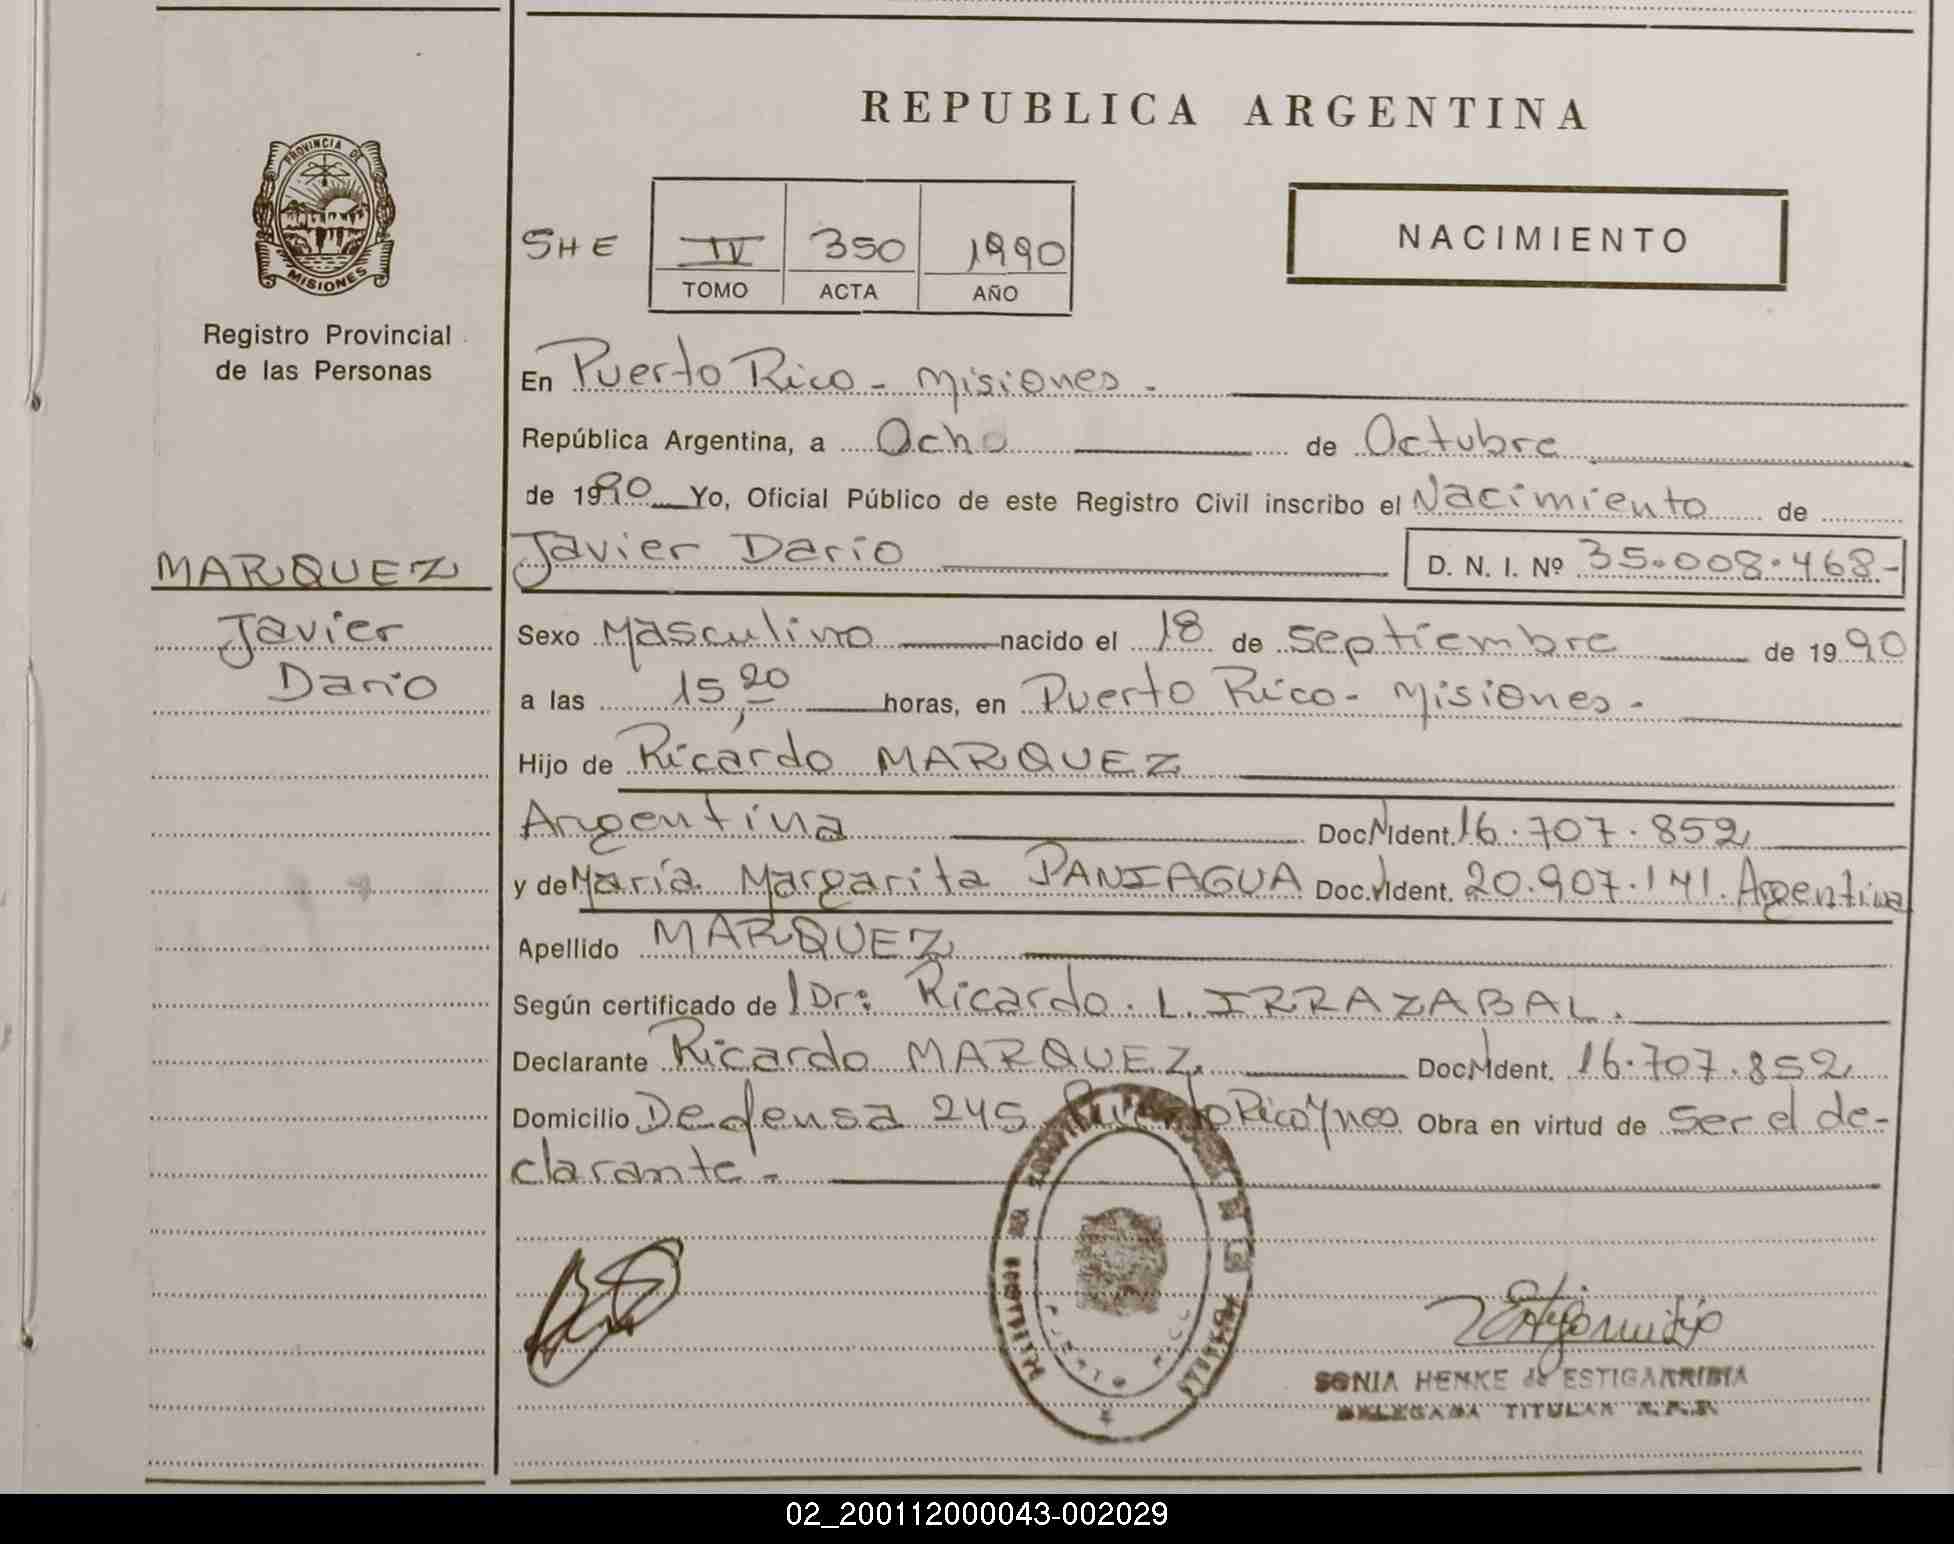 REPUBLICA ARGENTINA
PROVINCIA DE
MISIONES
Registro Provincial
de las Personas
SHE
IV 350 1990
TOMO ACTA AÑO
NACIMIENTO
MARQUEZ
Javier
Dario
En Puerto Rico - Misiones -
República Argentina, a Ocho de Octubre
de 1990 Yo, Oficial Público de este Registro Civil inscribo el Nacimiento de
Javier Dario D. N. I. Nº 35.008.468-
Sexo Masculino nacido el 18 de Septiembre de 1990
a las 15,20 horas, en Puerto Rico - Misiones -
Hijo de Ricardo MARQUEZ
Argentina Doc. N Ident. 16.707.852
y de María Margarita PANIAGUA Doc. N Ident. 20.907.141. Argentina
Apellido MARQUEZ
Según certificado de l Dr: Ricardo L. IRRAZABAL.
Declarante Ricardo MARQUEZ. Doc. N Ident. 16.707.852
Domicilio Defensa 245 Puerto Rico Mnes Obra en virtud de Ser el de-
clarante -
PUERTO RICO
SONIA HENKE de ESTIGARRIBIA
DELEGADA TITULAR R.P.P.
02_200112000043-002029